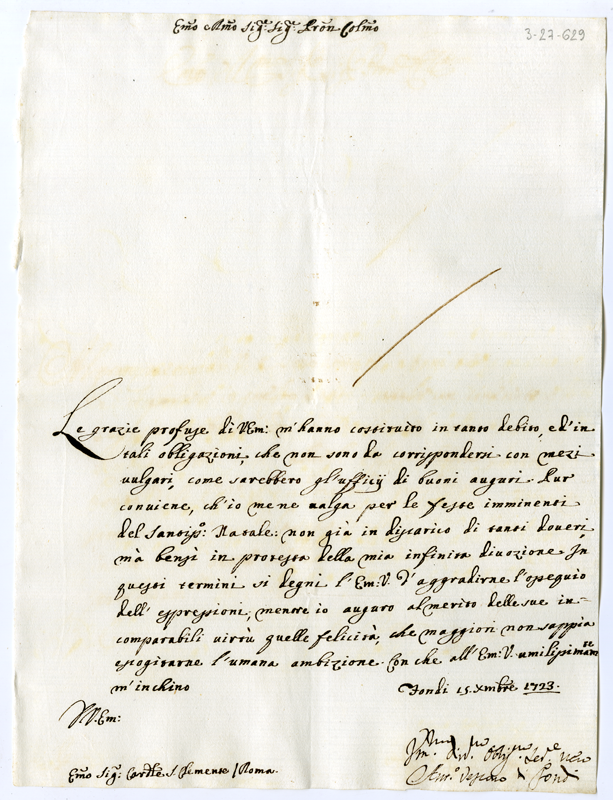 Emo Rmo Sig: Sig: Pron Colmo
3-27-629
Le grazie profuse di VEm: m'hanno costituito in tanto debito, e d'in
tali obligazioni, che non sono da corrispondersi con mezi
vulgari, come sarebbero gl'ufficij di buoni auguri. Pur
conviene, ch'io me ne valga per le feste imminenti
del Santiss: Natale: non già in discarico di tanti doveri,
mà bensì in protesta della mia infinita divozione. In
questi termini si degni l'Em:V. d'aggradirne l'ossequio
dell'espressioni, mentre io auguro al merito delle sue in-
comparabili virtù quelle felicità, che maggiori non sappia
escogitarne l'umana ambizione. Con che all'Em:V. umilissimamte
m'inchino
Fondi 15. Xmbre 1723.
VV.Em:
Emo Sig: Cardle S Clemente / Roma.
Vescovo di Fondi